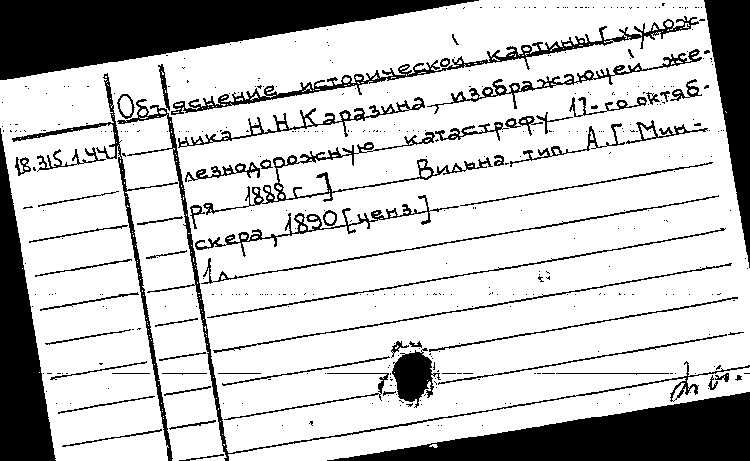 Объяснение исторической картины [худож-
ника Н.Н. Каразина, изображающей же-
18.315.1.447
лезнодорожную катастрофу 17-го октяб-
ря 1888 г.] Вильна, тип. А.Г. Мин-
скера, 1890 [ценз.]
1 л.